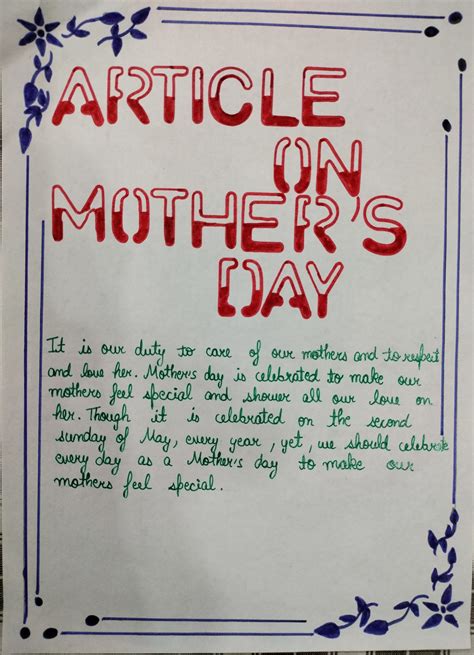 ARTICLE
ON
MOTHER'S
DAY
It is our duty to care of our mothers and to respect
and love her. Mother's day is celebrated to make our
mothers feel special and shower all our love on
her. Though it is celebrated on the second
sunday of May, every year, yet, we should celebrate
every day as a Mother's day to make our
mothers feel special.